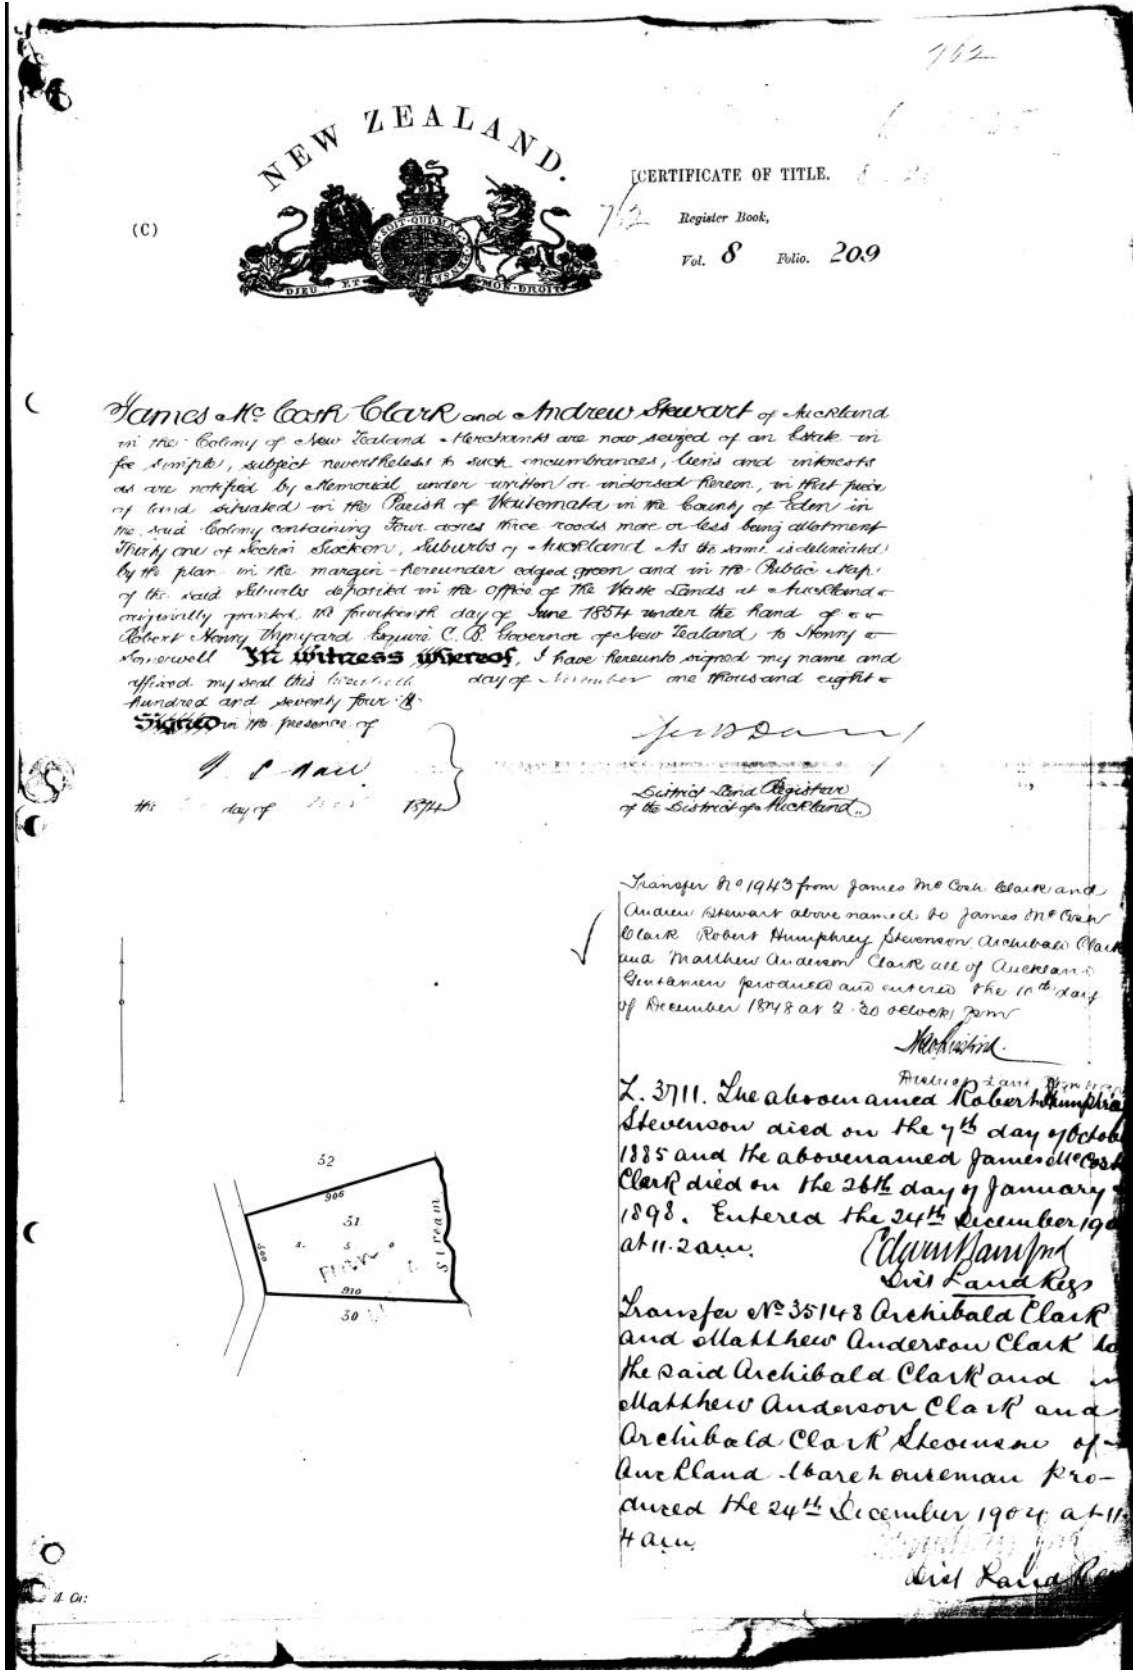 762
NEW ZEALAND.
[CERTIFICATE OF TITLE.
(C)
7/2
Register Book,
Vol. 8 Folio. 209
HONI · SOIT · QUI · MAL · PENSE
DIEU ET MON DROIT
James Mc Cosh Clark and Andrew Stewart of Auckland
in the Colony of New Zealand Merchants are now seized of an Estate in
fee simple, subject nevertheless to such incumbrances, liens and interests
as are notified by Memorial under written or indorsed hereon, in that piece
of land situated in the Parish of Waitemata in the County of Eden in
the said Colony containing Four acres three roods more or less being allotment
Thirty one of Section Sixteen, Suburbs of Auckland As the same is delineated
by the plan in the margin hereunder edged green and in the Public Map
of the said Suburbs deposited in the office of the Waste Lands at Auckland
originally granted the fourteenth day of June 1854 under the hand of
Robert Henry Wynyard Esquire C. B. Governor of New Zealand to Henry
Somerwell In witness whereof, I have hereunto signed my name and
affixed my seal this twentieth day of November one thousand eight
hundred and seventy four
Signed in the presence of
this day of 1874
District Land Registrar
of the District of Auckland.
Transfer No 1943 from James Mc Cosh Clark and
Andrew Stewart above named to James Mc Cosh
Clark Robert Humphrey Stevenson Archibald Clark
and Matthew Anderson Clark all of Auckland
Gentlemen produced and entered the 10th day
of December 1878 at 2.30 oclock pm
District Land
Z. 3711. The abovenamed Robert Humphrey
Stevenson died on the 7th day of Octobe
1885 and the abovenamed James Mc Cosh
Clark died on the 26th day of January
1898. Entered the 24th December 190
at 11.2 am.
Edwin Bamford
Dist Land Regs
Transfer No 35148 Archibald Clark
and Matthew Anderson Clark to
the said Archibald Clark and
Matthew Anderson Clark and
Archibald Clark Stevenson of
Auckland Warehouseman pro-
duced the 24th December 1904 at 11.
4 am.
Dist Land Re
32
906
31
4. 3 0
500
Stream
910
30